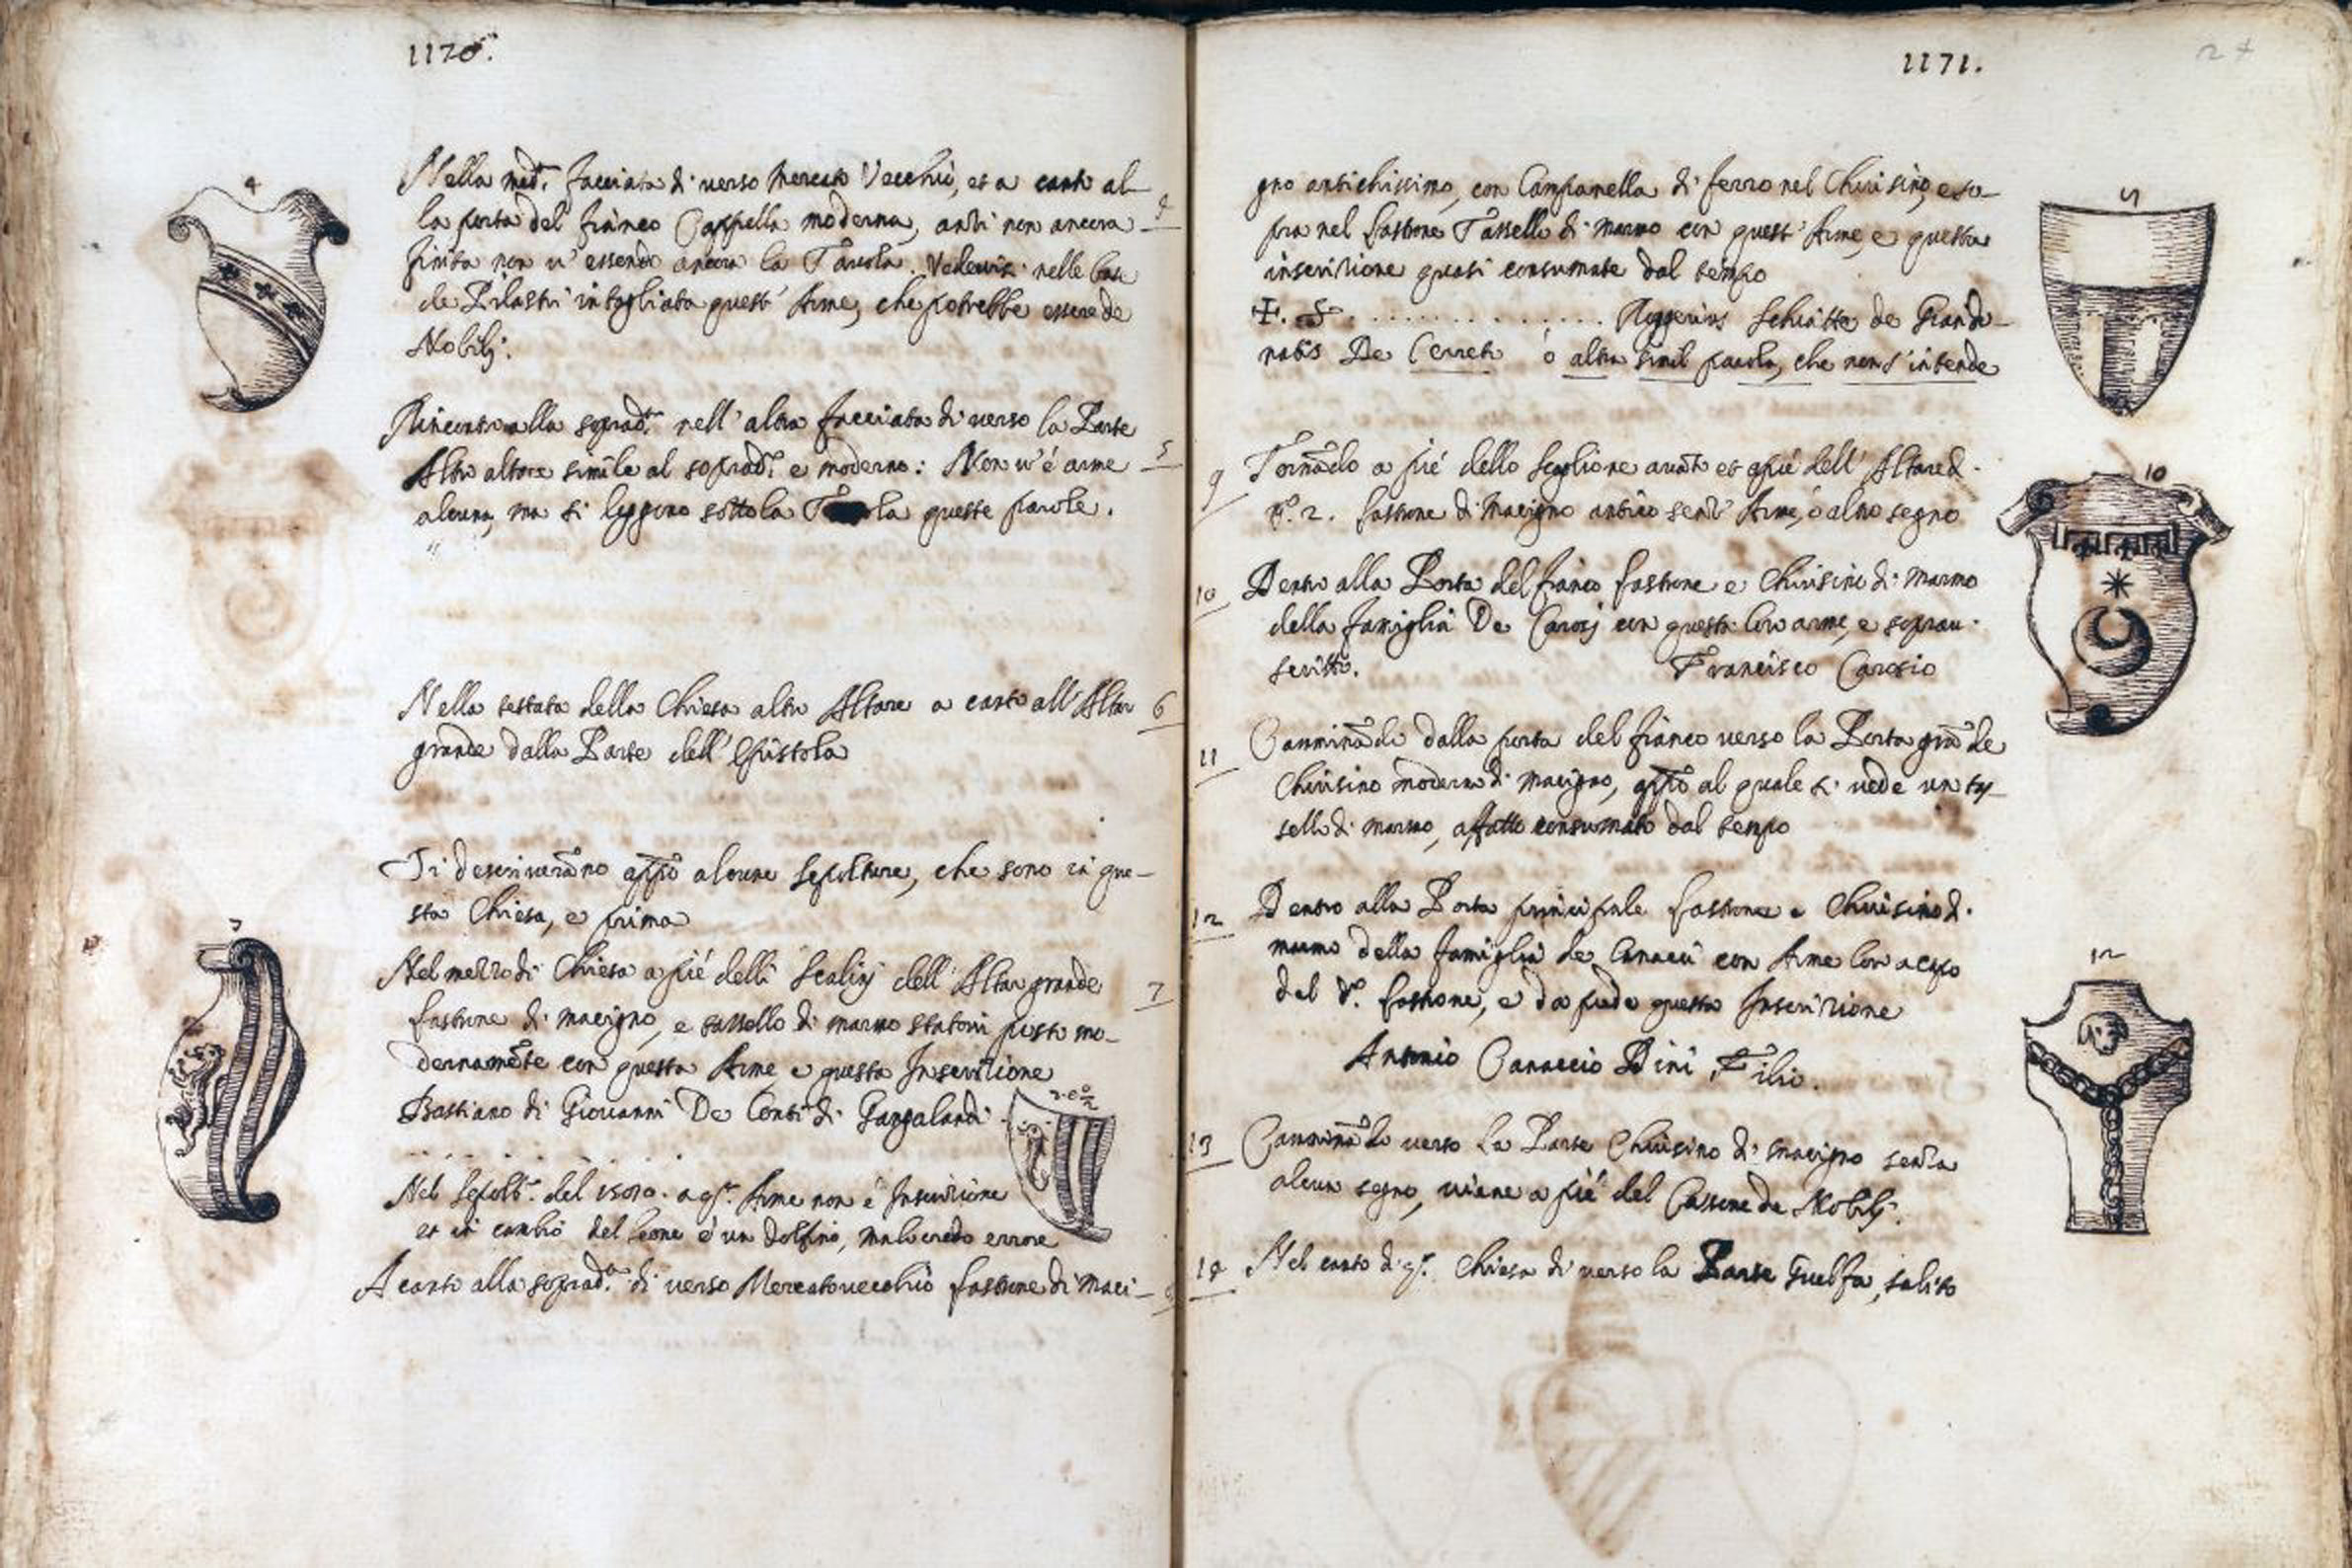 1170.
4
Nella med.ª facciata di verso Mercato Vecchio, et a canto al-
la porta del fianco Cappella moderna, anzi non ancora
4
finita non v'essendo ancora la Tavola. Vedevisi nelle base
de Pilastri intagliata quest' Arme, che potrebbe essere de
Nobilj.
Rincontro alla soprad.ª nell' altra facciata di verso la Parte
Altro altare simile al soprad.º e moderno: Non v'é arme
5
alcuna, ma si leggono sotto la queste parole.
"
Nella testata della Chiesa altro Altare a canto all' Altar
6
grande dalla Parte dell' Epistola
Si descriverãno app.º alcune sepolture, che sono in que-
sta Chiesa, e prima
7
Nel mezzo di Chiesa a pié delli Scalinj dell' Altar grande
7
lastrone di macigno, e tassello di marmo statovi posto mo-
dernamẽte con questa Arme e questa Inscrizione
Bastiano di Giovanni De Conti di Gangalandi
Nel Sepolt. del a q.ª Arme non é Inscrizione
et in cambio del leone é un Dolfino, ma lo credo errore
A canto alla soprad.ª di verso Mercatovecchio lastrone di maci-
8
1171.
24
gno antichissimo, con Campanella di ferro nel Chiusino, e so-
pra nel lastrone Tassello di marmo con quest' Arme, e questa
inscrizione quasi consumate dal tempo
✠. S. . . . . . . . . . . . . . . Schiatte de Grando-
natis De Cerreto ó altra simil parola, che non s'intende
9 Tornãdo a pié dello scaglione avãti et a pié dell' Altare d.
n.º 2. lastrone di macigno antico senz' Arme, ó altro segno
10
10 Dentro alla Porta del fianco lastrone e Chiusino di marmo
della famiglia De Carosj con questa loro arme, e soprav.
scritto. Francisco Carosio
11 Camminãdo dalla porta del fianco verso la Porta grãde
Chiusino moderno di macigno, app.º al quale si vede un tas-
sello di marmo, affatto consumato dal tempo
12 Dentro alla Porta principale lastrone e Chiusino di
marmo della famiglia de Canacci con Arme loro a capo
del d.º lastrone, e da piede questa Inscrizione
12
Antonio Canaccio Dini Filio.
13 Camminãdo verso la Parte Chiusino di macigno senza
alcun segno, viene a pié del Cassone de Nobilj.
14 Nel canto di q.ª Chiesa di verso la Parte Guelfa, salito